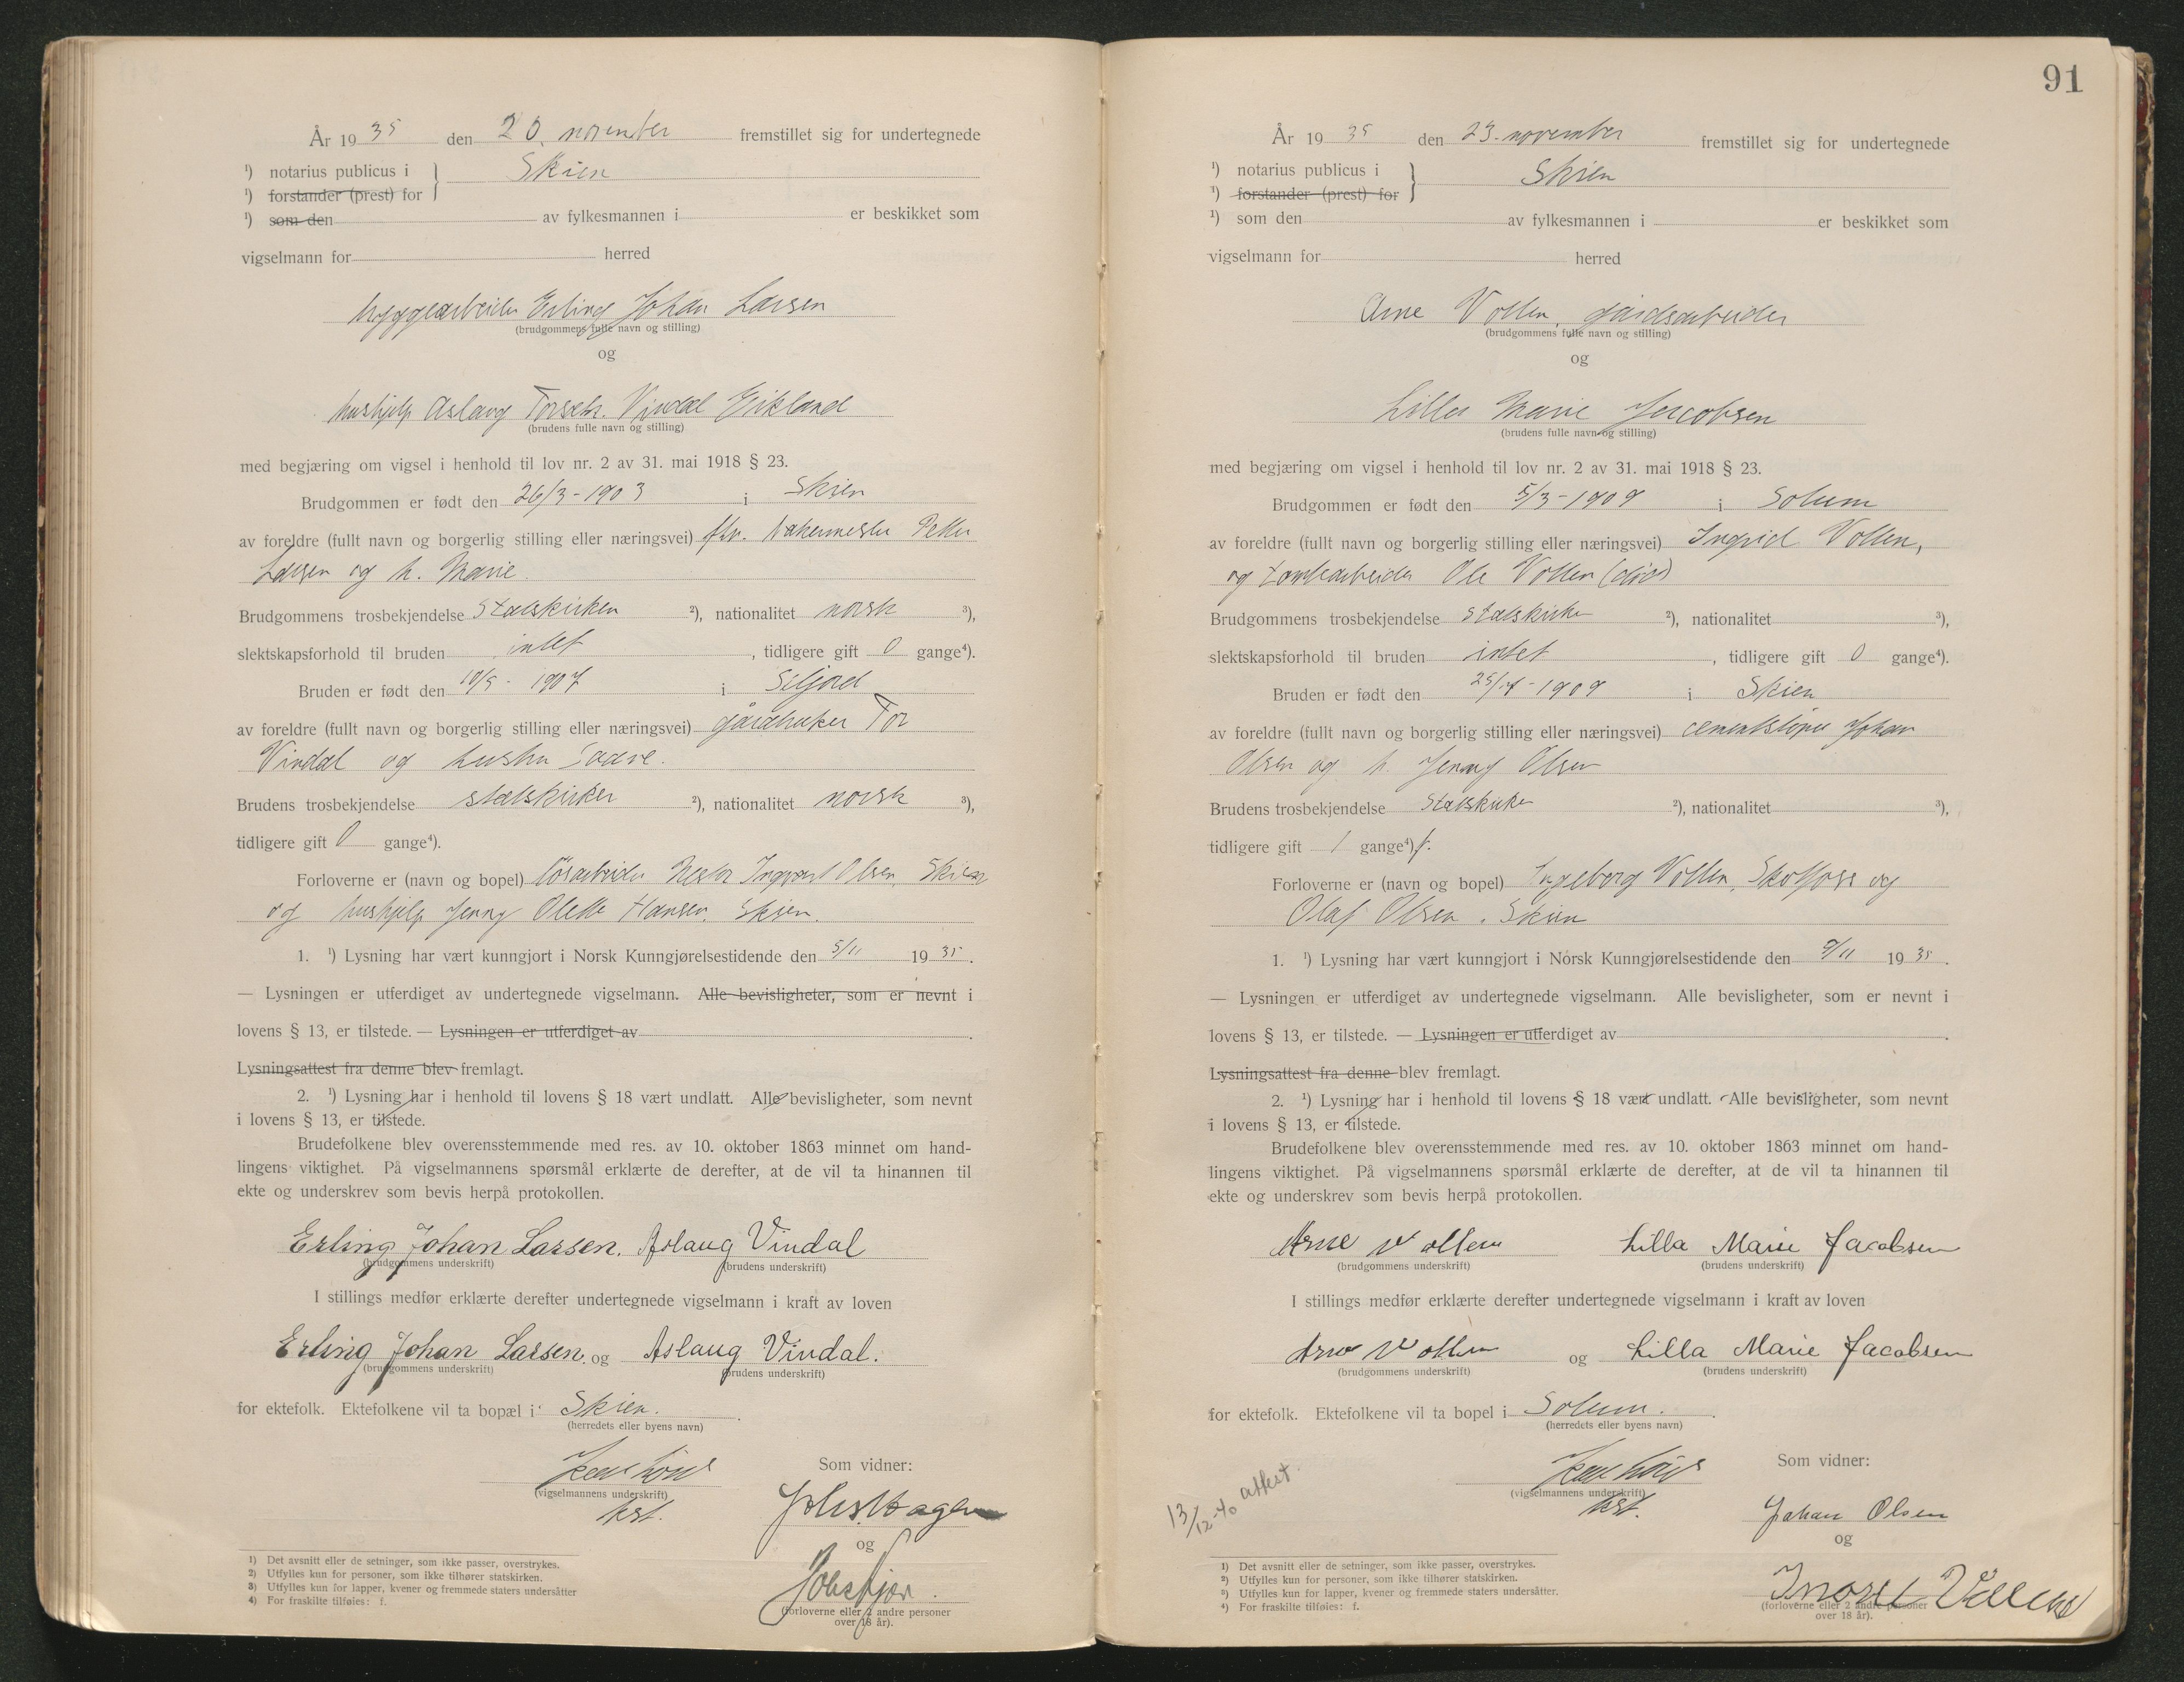 År 1935 den 20. november fremstillet sig for undertegnede
¹) notarius publicus i } Skien
¹) forstander (prest) for
¹) som den av fylkesmannen i er beskikket som
vigselmann for herred
bryggearbeider Erling Johan Larsen
(brudgommens fulle navn og stilling)
og
hushjelp Aslaug Torsdtr. Vindal Eikland
(brudens fulle navn og stilling)
med begjæring om vigsel i henhold til lov nr. 2 av 31. mai 1918 § 23.
Brudgommen er født den 26/3-1903 i Skien
av foreldre (fullt navn og borgerlig stilling eller næringsvei) fhv. Petter
Larsen og h. Marie.
Brudgommens trosbekjendelse Statskirken ²), nationalitet norsk ³),
slektskapsforhold til bruden intet, tidligere gift 0 gange⁴).
Bruden er født den 10/5-1907 i Seljord
av foreldre (fullt navn og borgerlig stilling eller næringsvei) gårdbruker Tor
Vindal og hustru
Brudens trosbekjendelse statskirken ²), nationalitet norsk ³),
tidligere gift 0 gange⁴).
Forloverne er (navn og bopel) løsarbeider Ingvart Olsen, Skien
og hushjelp Jenny Olette Hansen, Skien.
1. ¹) Lysning har vært kunngjort i Norsk Kunngjørelsestidende den 5/11 1935.
— Lysningen er utferdiget av undertegnede vigselmann. Alle bevisligheter, som er nevnt i
lovens § 13, er tilstede. — Lysningen er utferdiget av .
Lysningsattest fra denne blev fremlagt.
2. ¹) Lysning har i henhold til lovens § 18 vært undlatt. Alle bevisligheter, som nevnt
i lovens § 13, er tilstede.
Brudefolkene blev overensstemmende med res. av 10. oktober 1863 minnet om hand-
lingens viktighet. På vigselmannens spørsmål erklærte de derefter, at de vil ta hinannen til
ekte og underskrev som bevis herpå protokollen.
Erling Johan Larsen. Aslaug Vindal
(brudgommens underskrift) (brudens underskrift)
I stillings medfør erklærte derefter undertegnede vigselmann i kraft av loven
Erling Johan Larsen. og Aslaug Vindal.
(brudgommens underskrift) (brudens underskrift)
for ektefolk. Ektefolkene vil ta bopæl i Skien.
(herredets eller byens navn)
Som vidner:
(vigselmannens underskrift)
kst.
Johs. Hagen
og
(forloverne eller 2 andre personer
over 18 år).
1) Det avsnitt eller de setninger, som ikke passer, overstrykes.
2) Utfylles kun for personer, som ikke tilhører statskirken.
3) Utfylles kun for lapper, kvener og fremmede staters undersåtter
4) For fraskilte tilføies: f.
91
År 1935 den 23. november fremstillet sig for undertegnede
¹) notarius publicus i } Skien
¹) forstander (prest) for
¹) som den av fylkesmannen i er beskikket som
vigselmann for herred
Arne Vollen, gårdsarbeider
(brudgommens fulle navn og stilling)
og
Lilla Marie Jacobsen
(brudens fulle navn og stilling)
med begjæring om vigsel i henhold til lov nr. 2 av 31. mai 1918 § 23.
Brudgommen er født den 5/3-1909 i Solum
av foreldre (fullt navn og borgerlig stilling eller næringsvei) Ingrid Vollen,
og tomtearbeider Ole Vollen (død)
Brudgommens trosbekjendelse statskirke ²), nationalitet ³),
slektskapsforhold til bruden intet, tidligere gift 0 gange⁴).
Bruden er født den 1909 i Skien
av foreldre (fullt navn og borgerlig stilling eller næringsvei) cementstøper Johan
Olsen og h. Jenny Olsen
Brudens trosbekjendelse Statskirke ²), nationalitet ³),
tidligere gift 1 gange⁴) f.
Forloverne er (navn og bopel) Ingeborg Vollen, Skotfoss og
Olaf Olsen, Skien
1. ¹) Lysning har vært kunngjort i Norsk Kunngjørelsestidende den 9/11 1935.
— Lysningen er utferdiget av undertegnede vigselmann. Alle bevisligheter, som er nevnt i
lovens § 13, er tilstede. — Lysningen er utferdiget av .
Lysningsattest fra denne blev fremlagt.
2. ¹) Lysning har i henhold til lovens § 18 vært undlatt. Alle bevisligheter, som nevnt
i lovens § 13, er tilstede.
Brudefolkene blev overensstemmende med res. av 10. oktober 1863 minnet om hand-
lingens viktighet. På vigselmannens spørsmål erklærte de derefter, at de vil ta hinannen til
ekte og underskrev som bevis herpå protokollen.
Arne Vollen Lilla Marie Jacobsen
(brudgommens underskrift) (brudens underskrift)
I stillings medfør erklærte derefter undertegnede vigselmann i kraft av loven
Arne Vollen og Lilla Marie Jacobsen
(brudgommens underskrift) (brudens underskrift)
for ektefolk. Ektefolkene vil ta bopel i Solum.
(herredets eller byens navn)
13/12-40 attest.
Som vidner:
(vigselmannens underskrift)
kst.
Johan Olsen
og
Vollen
(forloverne eller 2 andre personer
over 18 år).
1) Det avsnitt eller de setninger, som ikke passer, overstrykes.
2) Utfylles kun for personer, som ikke tilhører statskirken.
3) Utfylles kun for lapper, kvener og fremmede staters undersåtter.
4) For fraskilte tilføies: f.